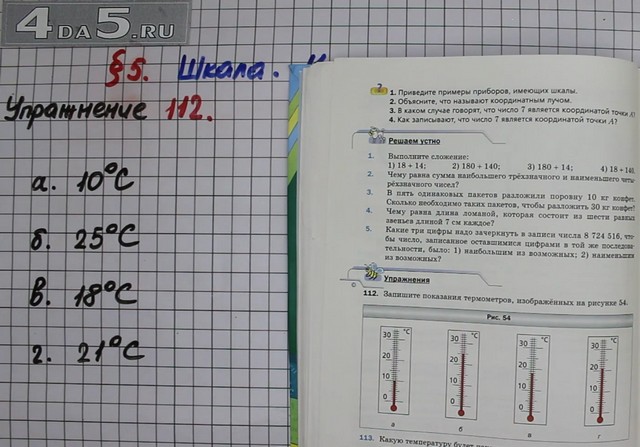 4DA5.RU
§5. Шкала.
Упражнение 112.
а. 10°С
б. 25°С
в. 18°С
г. 21°С
1. Приведите примеры приборов, имеющих шкалы.
2. Объясните, что называют координатным лучом.
3. В каком случае говорят, что число 7 является координатой точки
4. Как записывают, что число 7 является координатой точки A?
Решаем устно
1. Выполните сложение:
1) 18 + 14; 2) 180 + 140; 3) 180 + 14; 4) 18 + 140
2. Чему равна сумма наибольшего трёхзначного и наименьшего
рёхзначного чисел?
3. В пять одинаковых пакетов разложили поровну 10 кг конфет.
Сколько необходимо таких пакетов, чтобы разложить 30 кг конфет?
4. Чему равна длина ломаной, которая состоит из шести равных
звеньев длиной 7 см каждое?
5. Какие три цифры надо зачеркнуть в записи числа 8 724 516, что-
бы число, записанное оставшимися цифрами в той же последова-
тельности, было: 1) наибольшим из возможных; 2) наименьшим
из возможных?
Упражнения
112. Запишите показания термометров, изображённых на рисунке 54.
Рис. 54
°С °С °С °С
30 30 30 30
20 20 20 20
10 10 10 10
0 0 0 0
а б в
113. Какую температуру будет